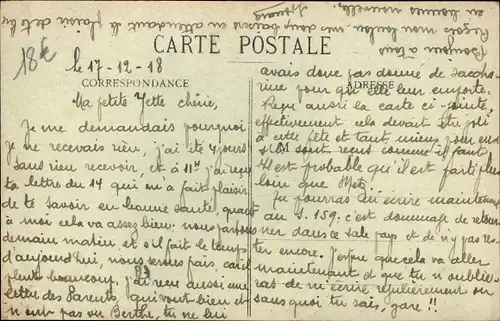 18€
CARTE POSTALE
CORRESPONDANCE
ADRESSE
le 17-12-18
Ma petite Yette chérie,
Je me demandais pourquoi
je ne recevais rien, j'ai été 4 jours
sans rien recevoir, et à 11h j'ai reçu
ta lettre du 14 qui m'a fait plaisir
de te savoir en bonne santé, quant
à moi cela va assez bien. nous partons
demain matin et s'il fait le temps
d'aujourd'hui, nous serons frais, car il
pleut beaucoup. j'ai reçu aussi une
lettre des Parents, qui vont bien et
n'ont pas vu Berthe, tu ne lui
avais donc pas donné de
pour qu'elle leur emporte.
Reçu aussi la carte ci-jointe,
effectivement cela devait être joli
à cette fête et tant mieux pour eux
s'ils sont reçus comme il faut,
il est probable qu'il est parti plus
loin que Metz.
Tu pourras m'écrire maintenant
au S. 159, c'est dommage de retour-
ner dans ce sale pays et de n'y pas res-
ter encore. J'espère que cela va aller
maintenant et que tu n'oublie-
ras de m'écrire régulièrement ou
sans quoi tu sais, gare !!
Bonjour à tous
Reçois mon loulou mes doux baisers en attendant le plaisir de te lire
en bonnes nouvelles.